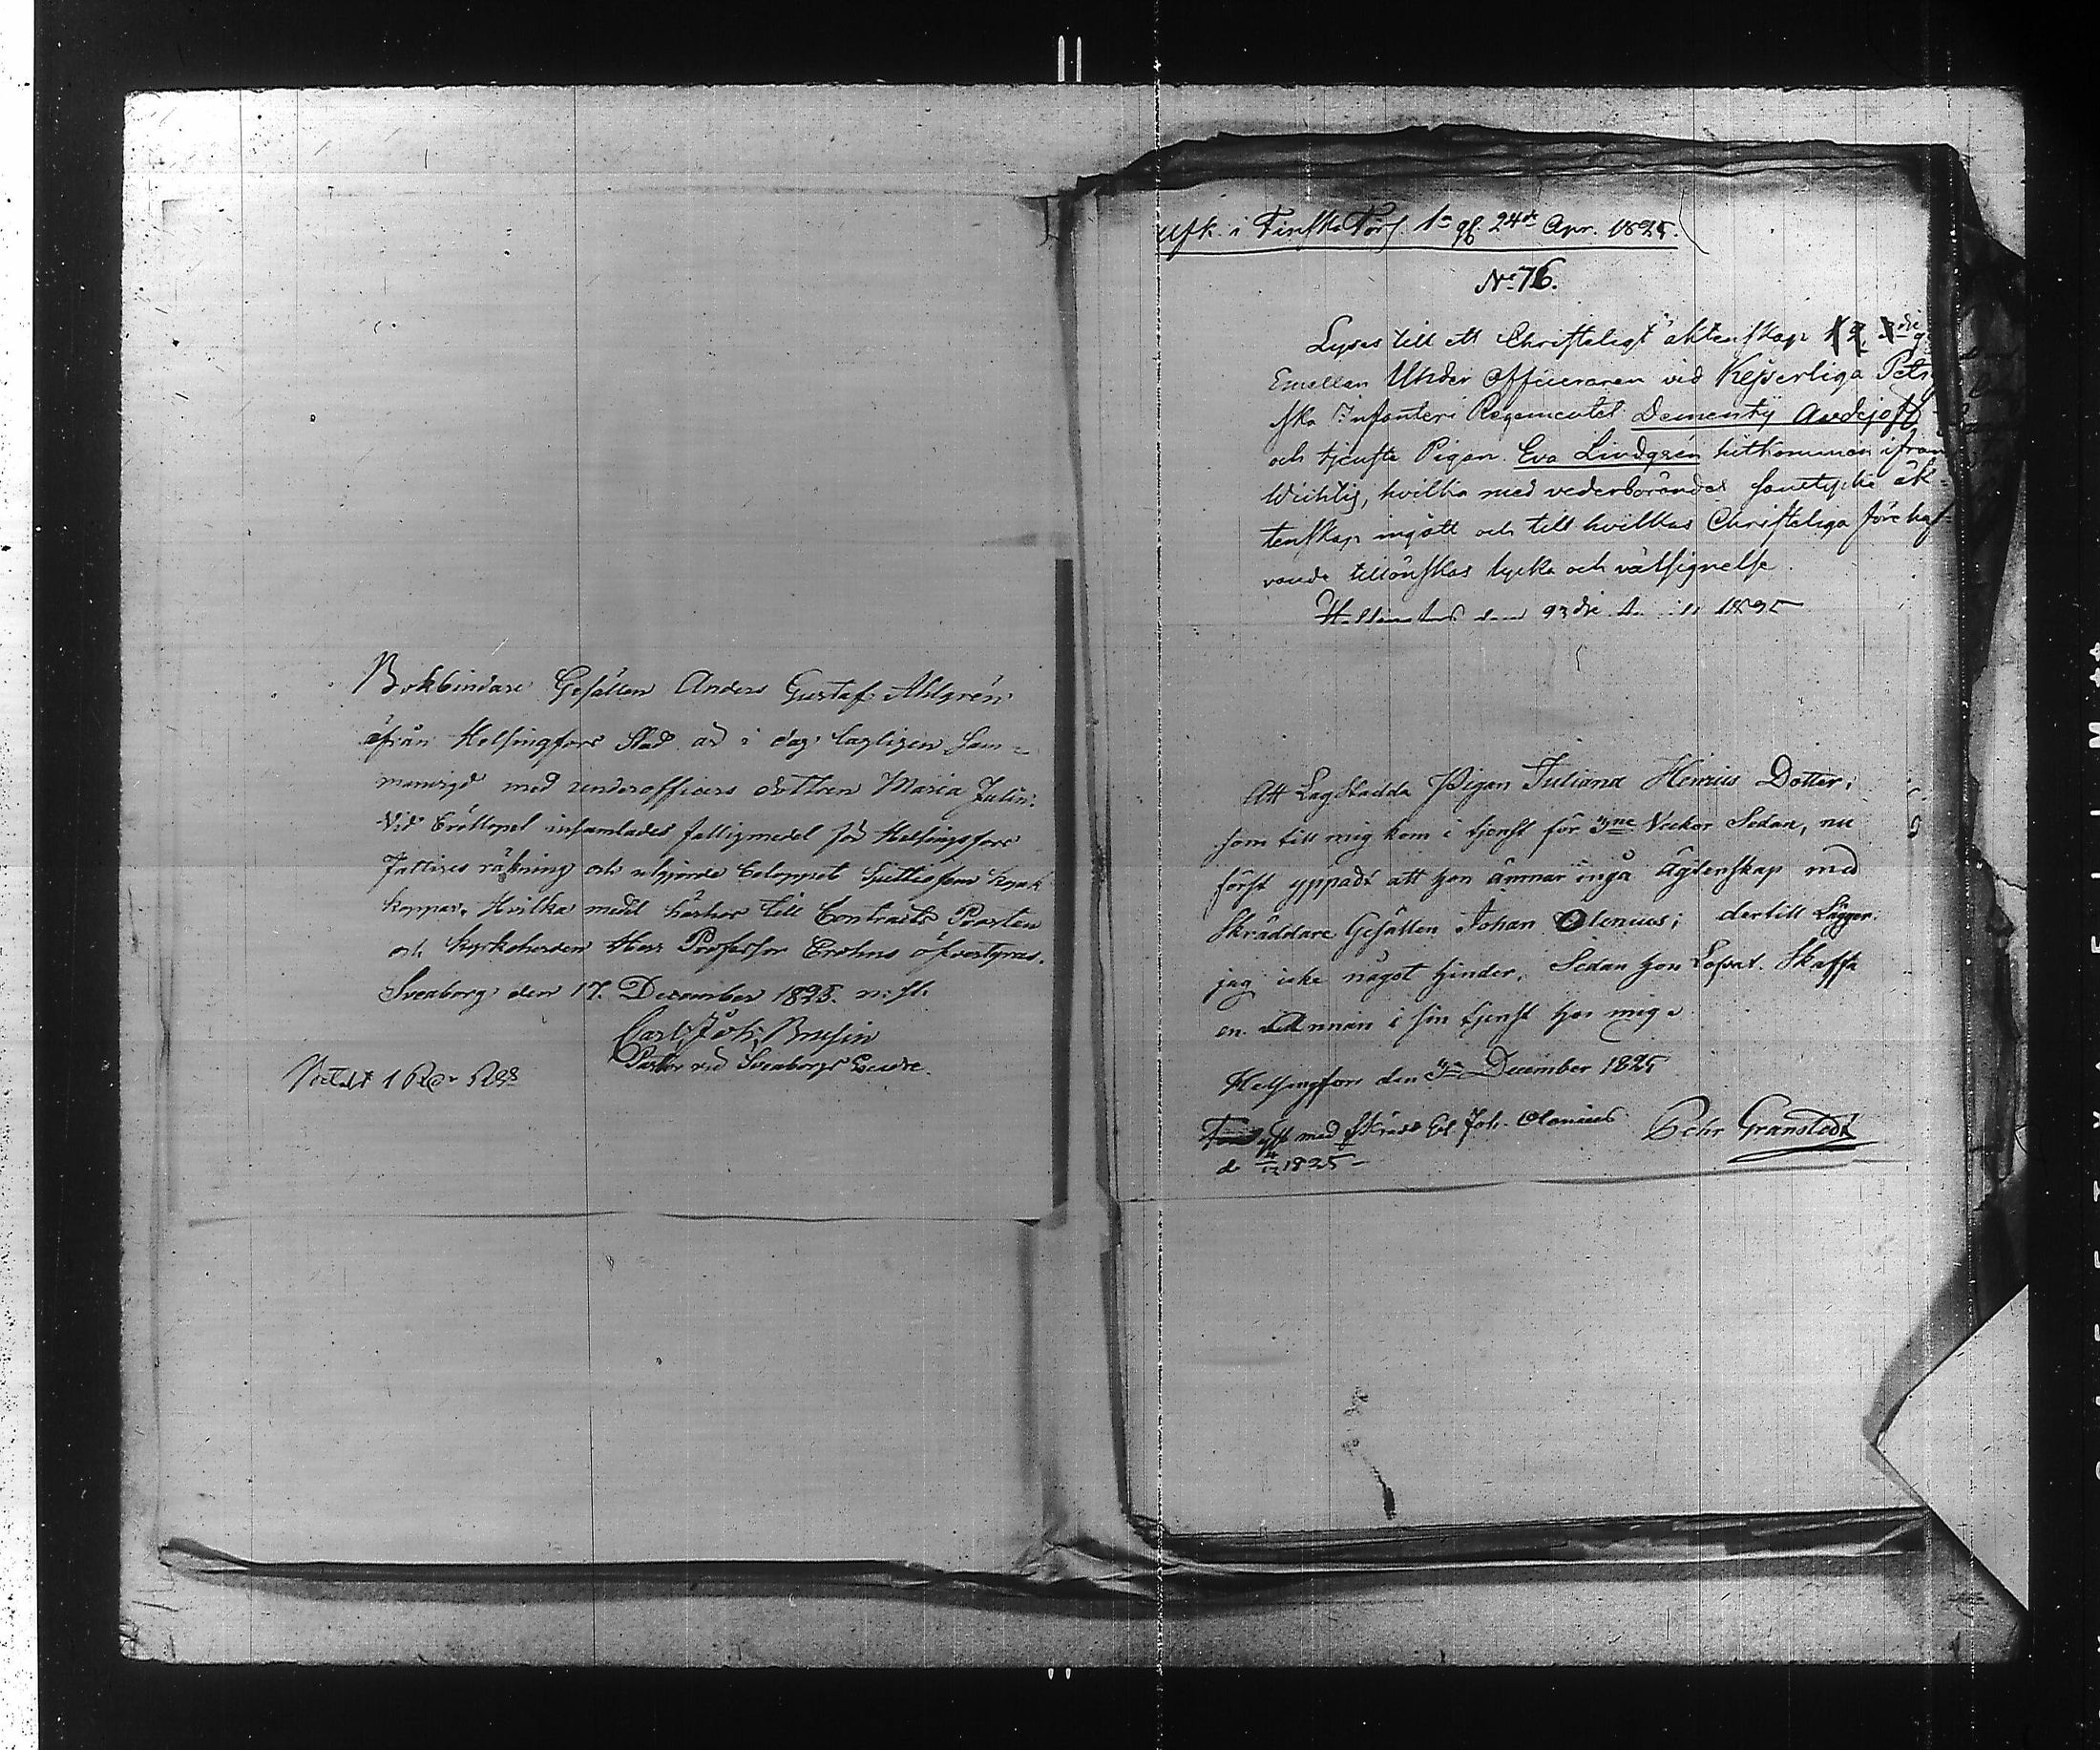 Bokbindare Gesällen Anders Gustaf Ahlgrén
ifrån Helsingfors Stad är i dag lagligen Sam-
manvigd med underofficers dottren Maria Julin.
Vid bröllopet insamlades fattigmedel för Helsingfors
Fattiges räkning och utgjorde beloppet Sjuttiofem kopek
koppar. Hvilka medel härhos till Contracts Prosten
och kyrkoherden Herr Professor Crohns öfversyras.
Sveaborg den 17. December 1825. n. st.
Carl Joh. Brusin
Pastor vid Sveaborgs
Betalt 1 Ro.
Afk. i Finska Förs. 1a g. 24de Apr. 1825.
No. 76.
Lyses till ett Christeligt äktenskap 1, 2, 3die g
Emellan Under Officeraren vid Kejserliga Petrof
ska Infanteri Regementet Dementij Avdejoff
och tjenste Pigan Eva Lindgrén hitkommen ifrån
Wichtis, hvilka med vederbörandes samtycke äk-
tenskap ingått och till hvilkas Christeliga förehaf-
vande tillönskas lycka och välsignelse.
den 23die 1825
Att Lagstadda Pigan Juliana Henrics Dotter;
som till mig kom i tjenst för 3ne Veckor Sedan, nu
först yppadt att hon ämnar ingå ägtenskap med
Skräddare Gesällen Johan Olenius; dertill Lägger
jag icke något hinder, Sedan hon Lofvat Skaffa
en Annan i sin tjenst hos mig.
Helsingfors den 3 December 1825
med Skrädd Ges Joh. Olenius
Pehr Granstedt
d 4/12 1825